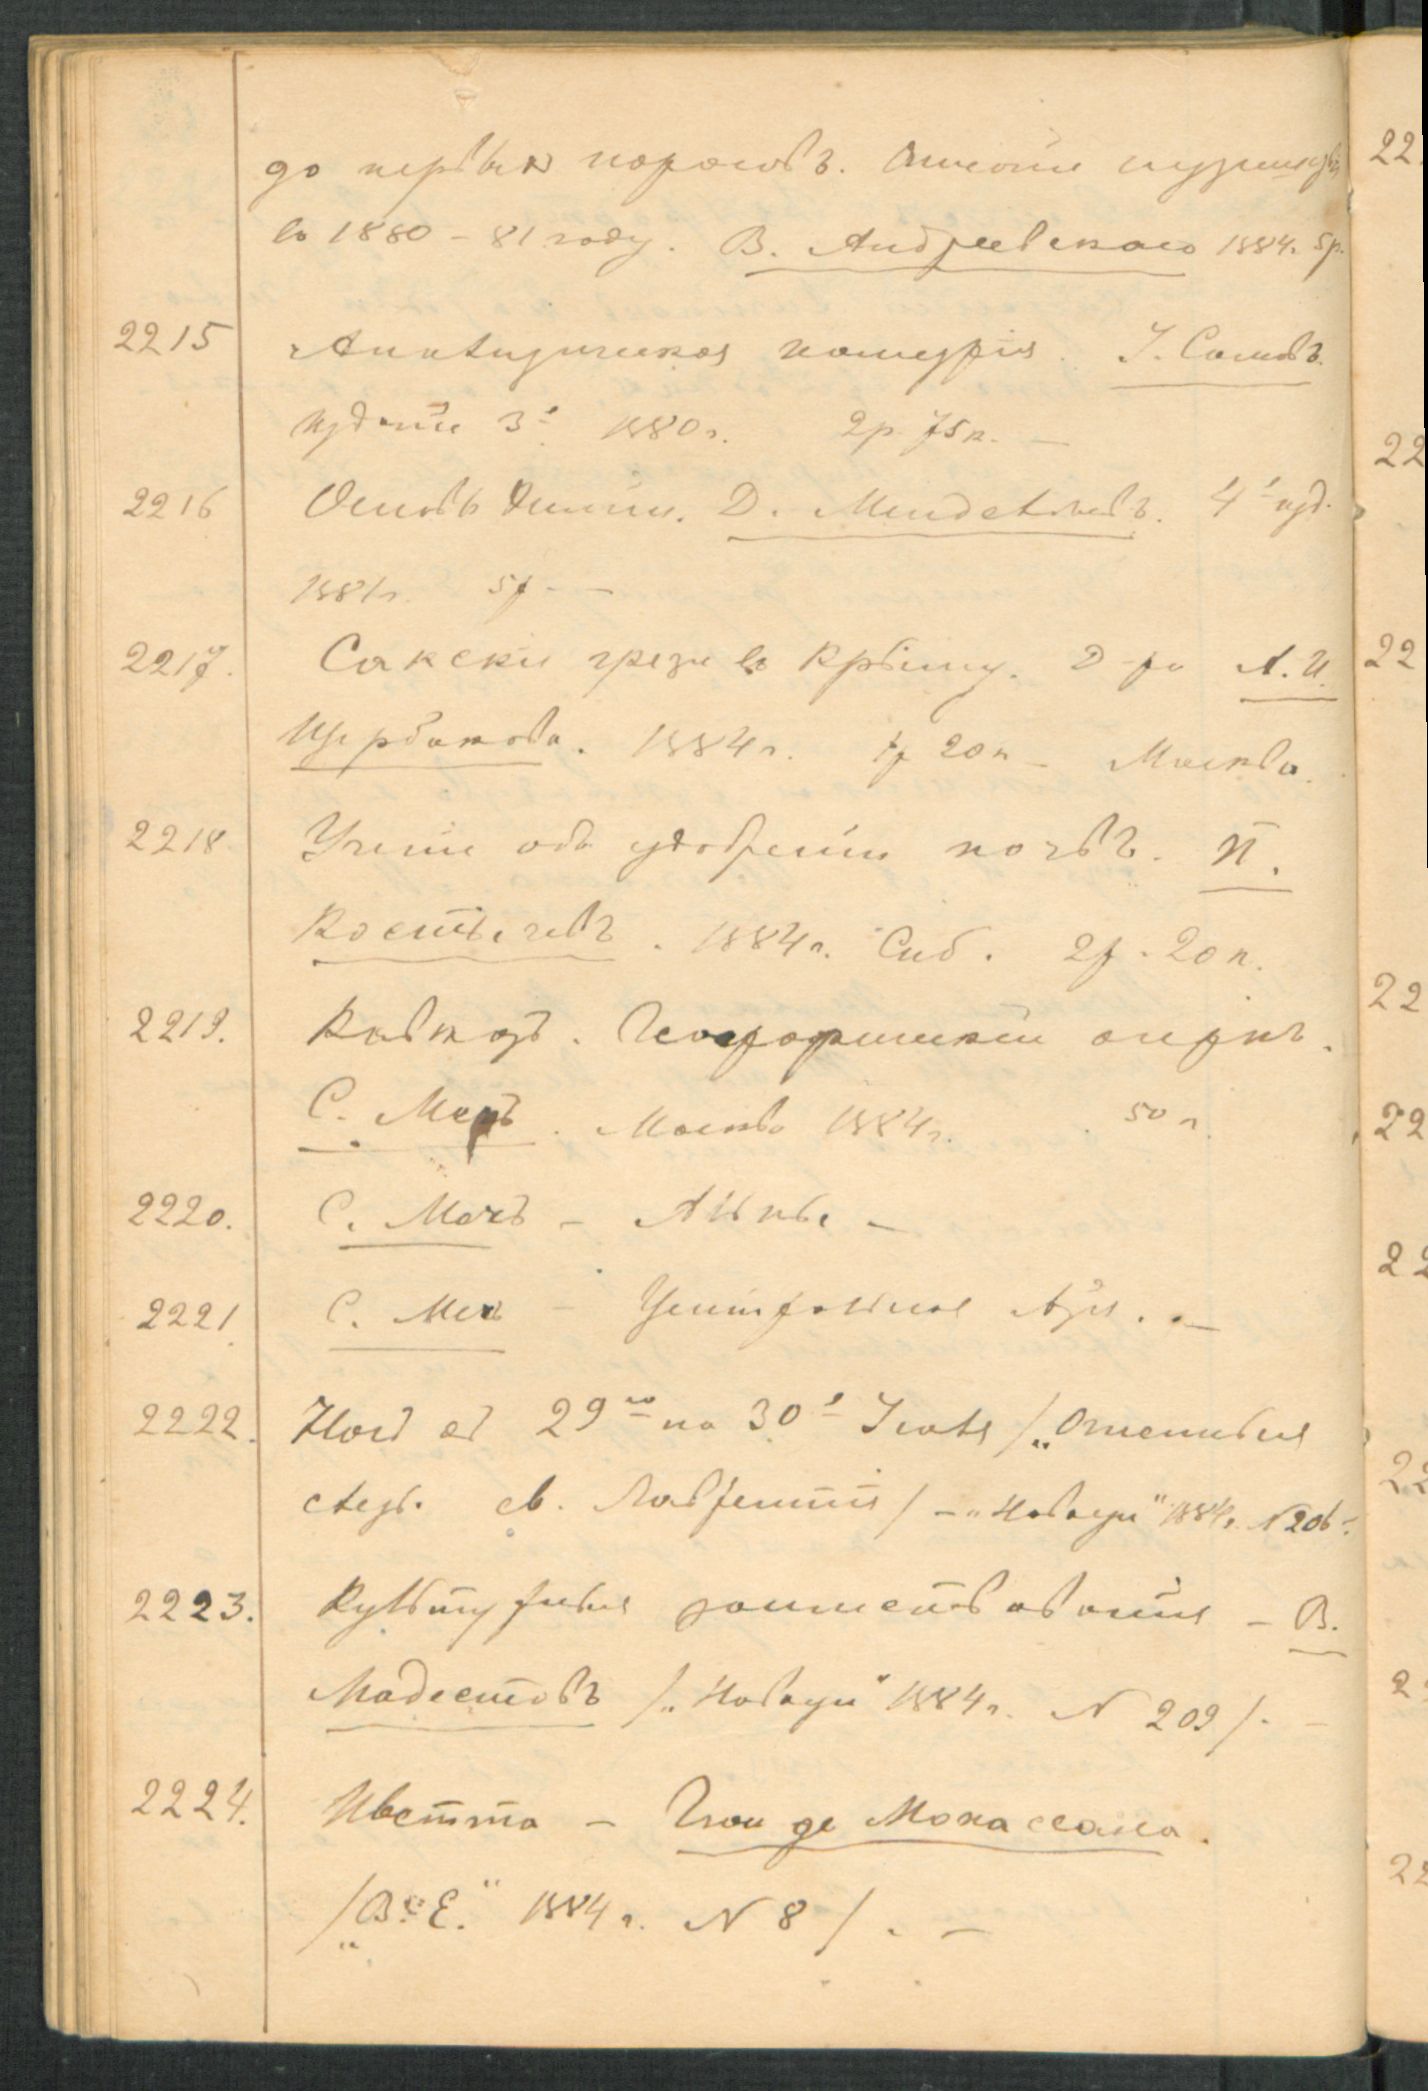 до первых пороговъ. Описаніе путешествія
въ 1880 – 81 году. В. Андреевскаго 1884. 5р.
2215 Аналитическая геометрія. І. Сомовъ.
изданіе 3е 1880г. 2р. 75к. –
2216 Основы химіи. Д. Менделѣевъ. 4е изд.
1881г. 5р. –
2217. Сакскія грязи въ Крыму. Д-ра А. И.
Щербакова. 1884г. 1р 20к – Москва.
2218. Ученіе объ удобреніи почвъ. П.
Костычевъ. 1884г. Спб. 2р. 20к.
2219. Кавказъ. Географическій очеркъ.
С. Мечъ. Москва 1884г. 50к.
2220. С. Мечъ – Альпы –
2221. С. Мечъ – Центральная Азія. –
2222. Ночь съ 29го на 30е Іюля /„Огненныя
слезы св. Лаврентія/ – „Новости" 1884г. N 206.
2223. Культурныя заимствованія – В.
Модестовъ /„Новости" 1884г. N 209/. –
2224. Иветта – Гюи де Мопассана.
/„В. Е." 1884г. N 8/. –
22
22
22
22
22
22
22
22
22